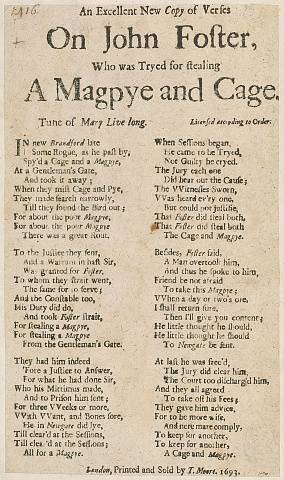 An Excellent New Copy of Verses
On John Foster,
Who was Tryed for stealing
A Magpye and Cage.
Tune of Mary Live long.
Licensed according to Order.
IN new Brandford late
Some Rogue, as he past by,
Spy'd a Cage and a Magpye,
At a Gentleman's Gate,
And took it away;
When they mist Cage and Pye,
They made search narrowly,
Till they found the Bird out;
For about the poor Magpye,
For about the poor Magpye
There was a great Rout.
To the Justice they sent,
And a Warrant in hast Sir,
Was granted for Foster,
To whom they strait went,
The same for to serve;
And the Constable too,
His Duty did do,
And took Foster strait,
For stealing a Magpye,
For stealing a Magpye
From the Gentleman's Gate.
They had him indeed
'Fore a Justice to Answer,
For what he had done Sir,
Who his Mittimus made,
And to Prison him sent;
For three VVeeks or more,
VVith VVant, and Bones sore,
He in Newgate did lye,
Till clear'd at the Sessions,
Till clea'd at the Sessions;
All for a Magpye.
When Sessions began,
He came to be Tryed,
Not Guilty he cryed.
The Jury each one
Did hear out the Cause;
The VVitnesses Sworn,
VVas heard ev'ry one,
But could not justifie,
That Foster did steal both,
That Foster did steal both
The Cage and Magpye.
Besides, Foster said,
A Man overtook him,
And thus he spoke to him,
Friend be not afraid
To take this Magpye;
VVhen a day or two's ore,
I shall return sure,
Then I'll give you content;
He little thought he should,
He little thought he should
To Newgate be sent.
At last he was free'd,
The Jury did clear him,
The Court too discharg'd him,
And they all agreed
To take off his Fees;
They gave him advice,
For to be more wise,
And ne're more comply,
To keep for another,
To keep for another,
A Cage and Magpye.
London, Printed and Sold by T. Moore. 1693.